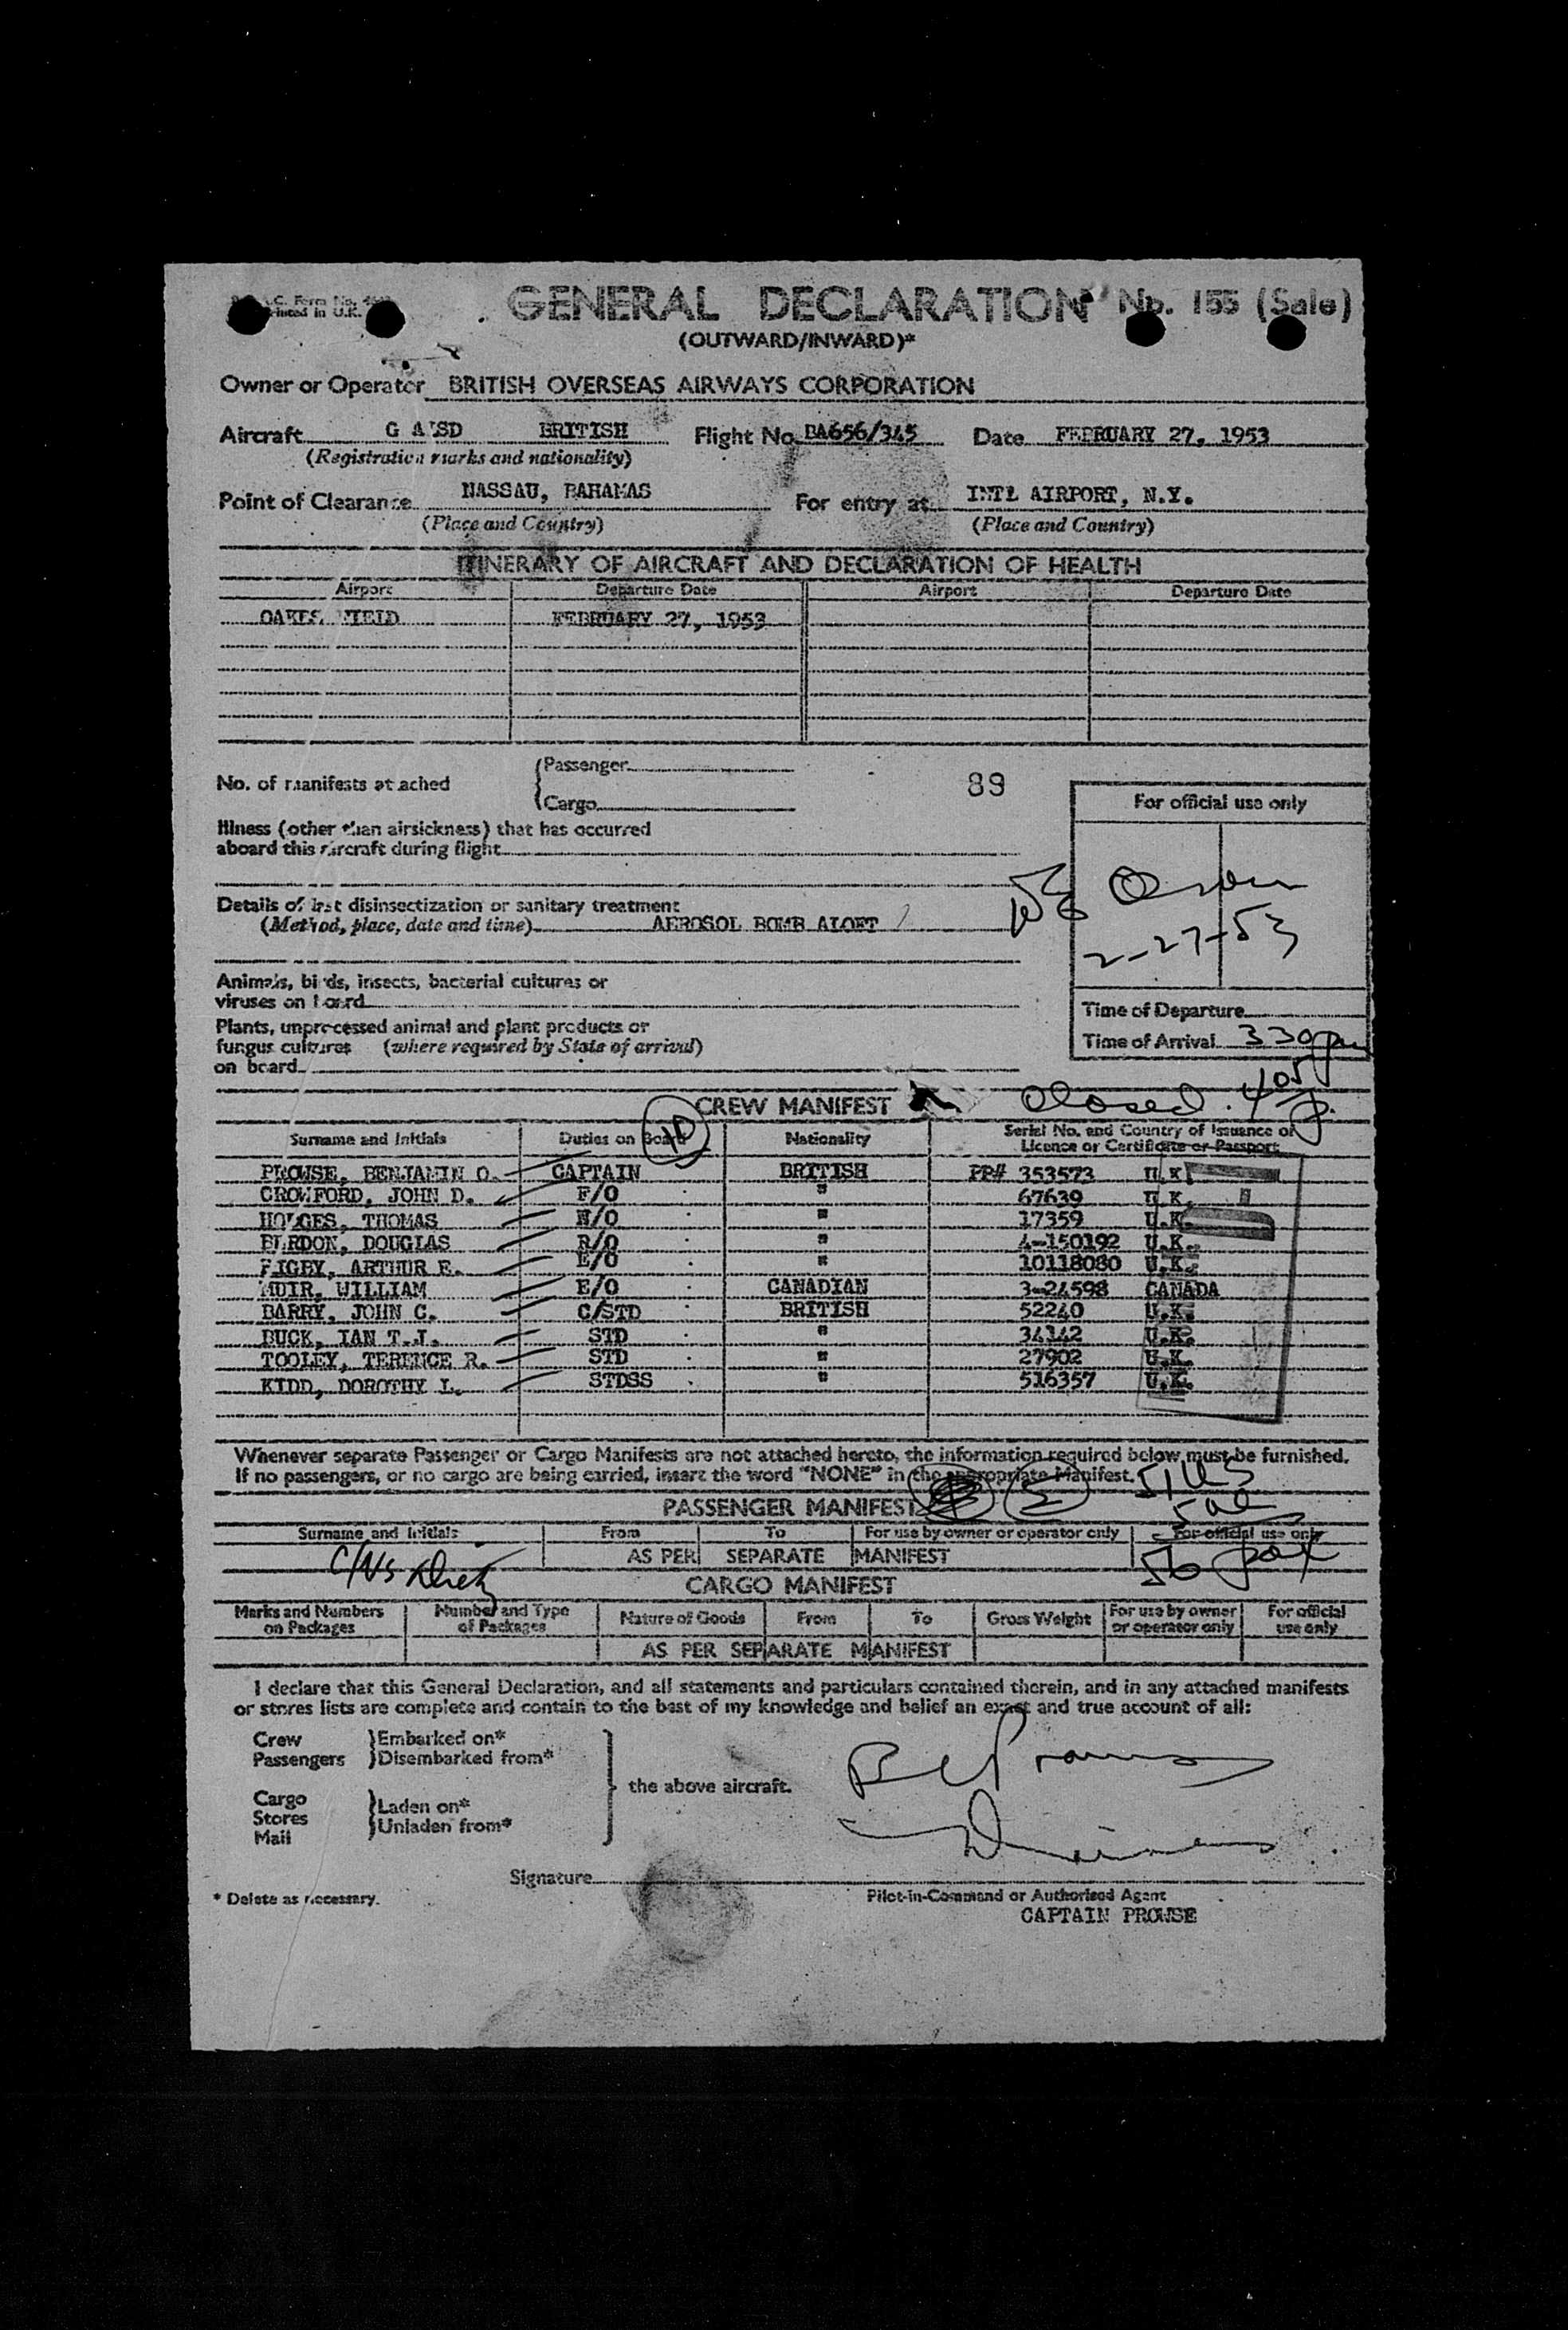 GENERAL DECLARATION No. 155 (Sale)
C. Form No.
Printed in U.K.
(OUTWARD/INWARD)*
Owner or Operator BRITISH OVERSEAS AIRWAYS CORPORATION
Aircraft BRITISH Flight No. BA656/345 Date FEBRUARY 27, 1953
(Registration marks and nationality)
Point of Clearance NASSAU, BAHAMAS For entry at INTL AIRPORT, N.Y.
(Place and Country) (Place and Country)
ITINERARY OF AIRCRAFT AND DECLARATION OF HEALTH
Airport Departure Date Airport Departure Date
OAKES FIELD FEBRUARY 27, 1953
No. of manifests attached
Passenger
Cargo
89
For official use only
Illness (other than airsickness) that has occurred
aboard this aircraft during flight
Details of last disinsectization or sanitary treatment
(Method, place, date and time) AEROSOL BOMB ALOFT
2-27-53
Animals, birds, insects, bacterial cultures or
viruses on board
Plants, unprocessed animal and plant products or
fungus cultures (where required by State of arrival)
on board
Time of Departure
Time of Arrival 330 pm
CREW MANIFEST closed 405 p.
10
Surname and Initials Duties on Board Nationality Serial No. and Country of Issuance of
Licence or Certificate or Passport
PROWSE, BENJAMIN O. CAPTAIN BRITISH PP# 353573 U.K.
CROWFORD, JOHN D. F/O " 67639 U.K.
HODGES, THOMAS N/O " 17359 U.K.
BURDON, DOUGLAS R/O " 4-150192 U.K.
RIGBY, ARTHUR E. E/O " 10118080 U.K.
MUIR, WILLIAM E/O CANADIAN 3-24598 CANADA
BARRY, JOHN C. C/STD BRITISH 52240 U.K.
BUCK, IAN T.J. STD " 34342 U.K.
TOOLEY, TERENCE R. STD " 27902 U.K.
KIDD, DOROTHY L. STDSS " 516357 U.K.
Whenever separate Passenger or Cargo Manifests are not attached hereto, the information required below must be furnished.
If no passengers, or no cargo are being carried, insert the word "NONE" in the appropriate Manifest.
51 US
PASSENGER MANIFEST 5 al
Surname and Initials From To For use by owner or operator only For official use only
AS PER SEPARATE MANIFEST 56 pax
CARGO MANIFEST
Marks and Numbers on Packages Number and Type of Packages Nature of Goods From To Gross Weight For use by owner or operator only For official use only
AS PER SEPARATE MANIFEST
I declare that this General Declaration, and all statements and particulars contained therein, and in any attached manifests
or stores lists are complete and contain to the best of my knowledge and belief an exact and true account of all:
Crew Embarked on*
Passengers Disembarked from*
the above aircraft.
Cargo
Stores Laden on*
Mail Unladen from*
Signature
* Delete as necessary.
Pilot-in-Command or Authorised Agent
CAPTAIN PROWSE